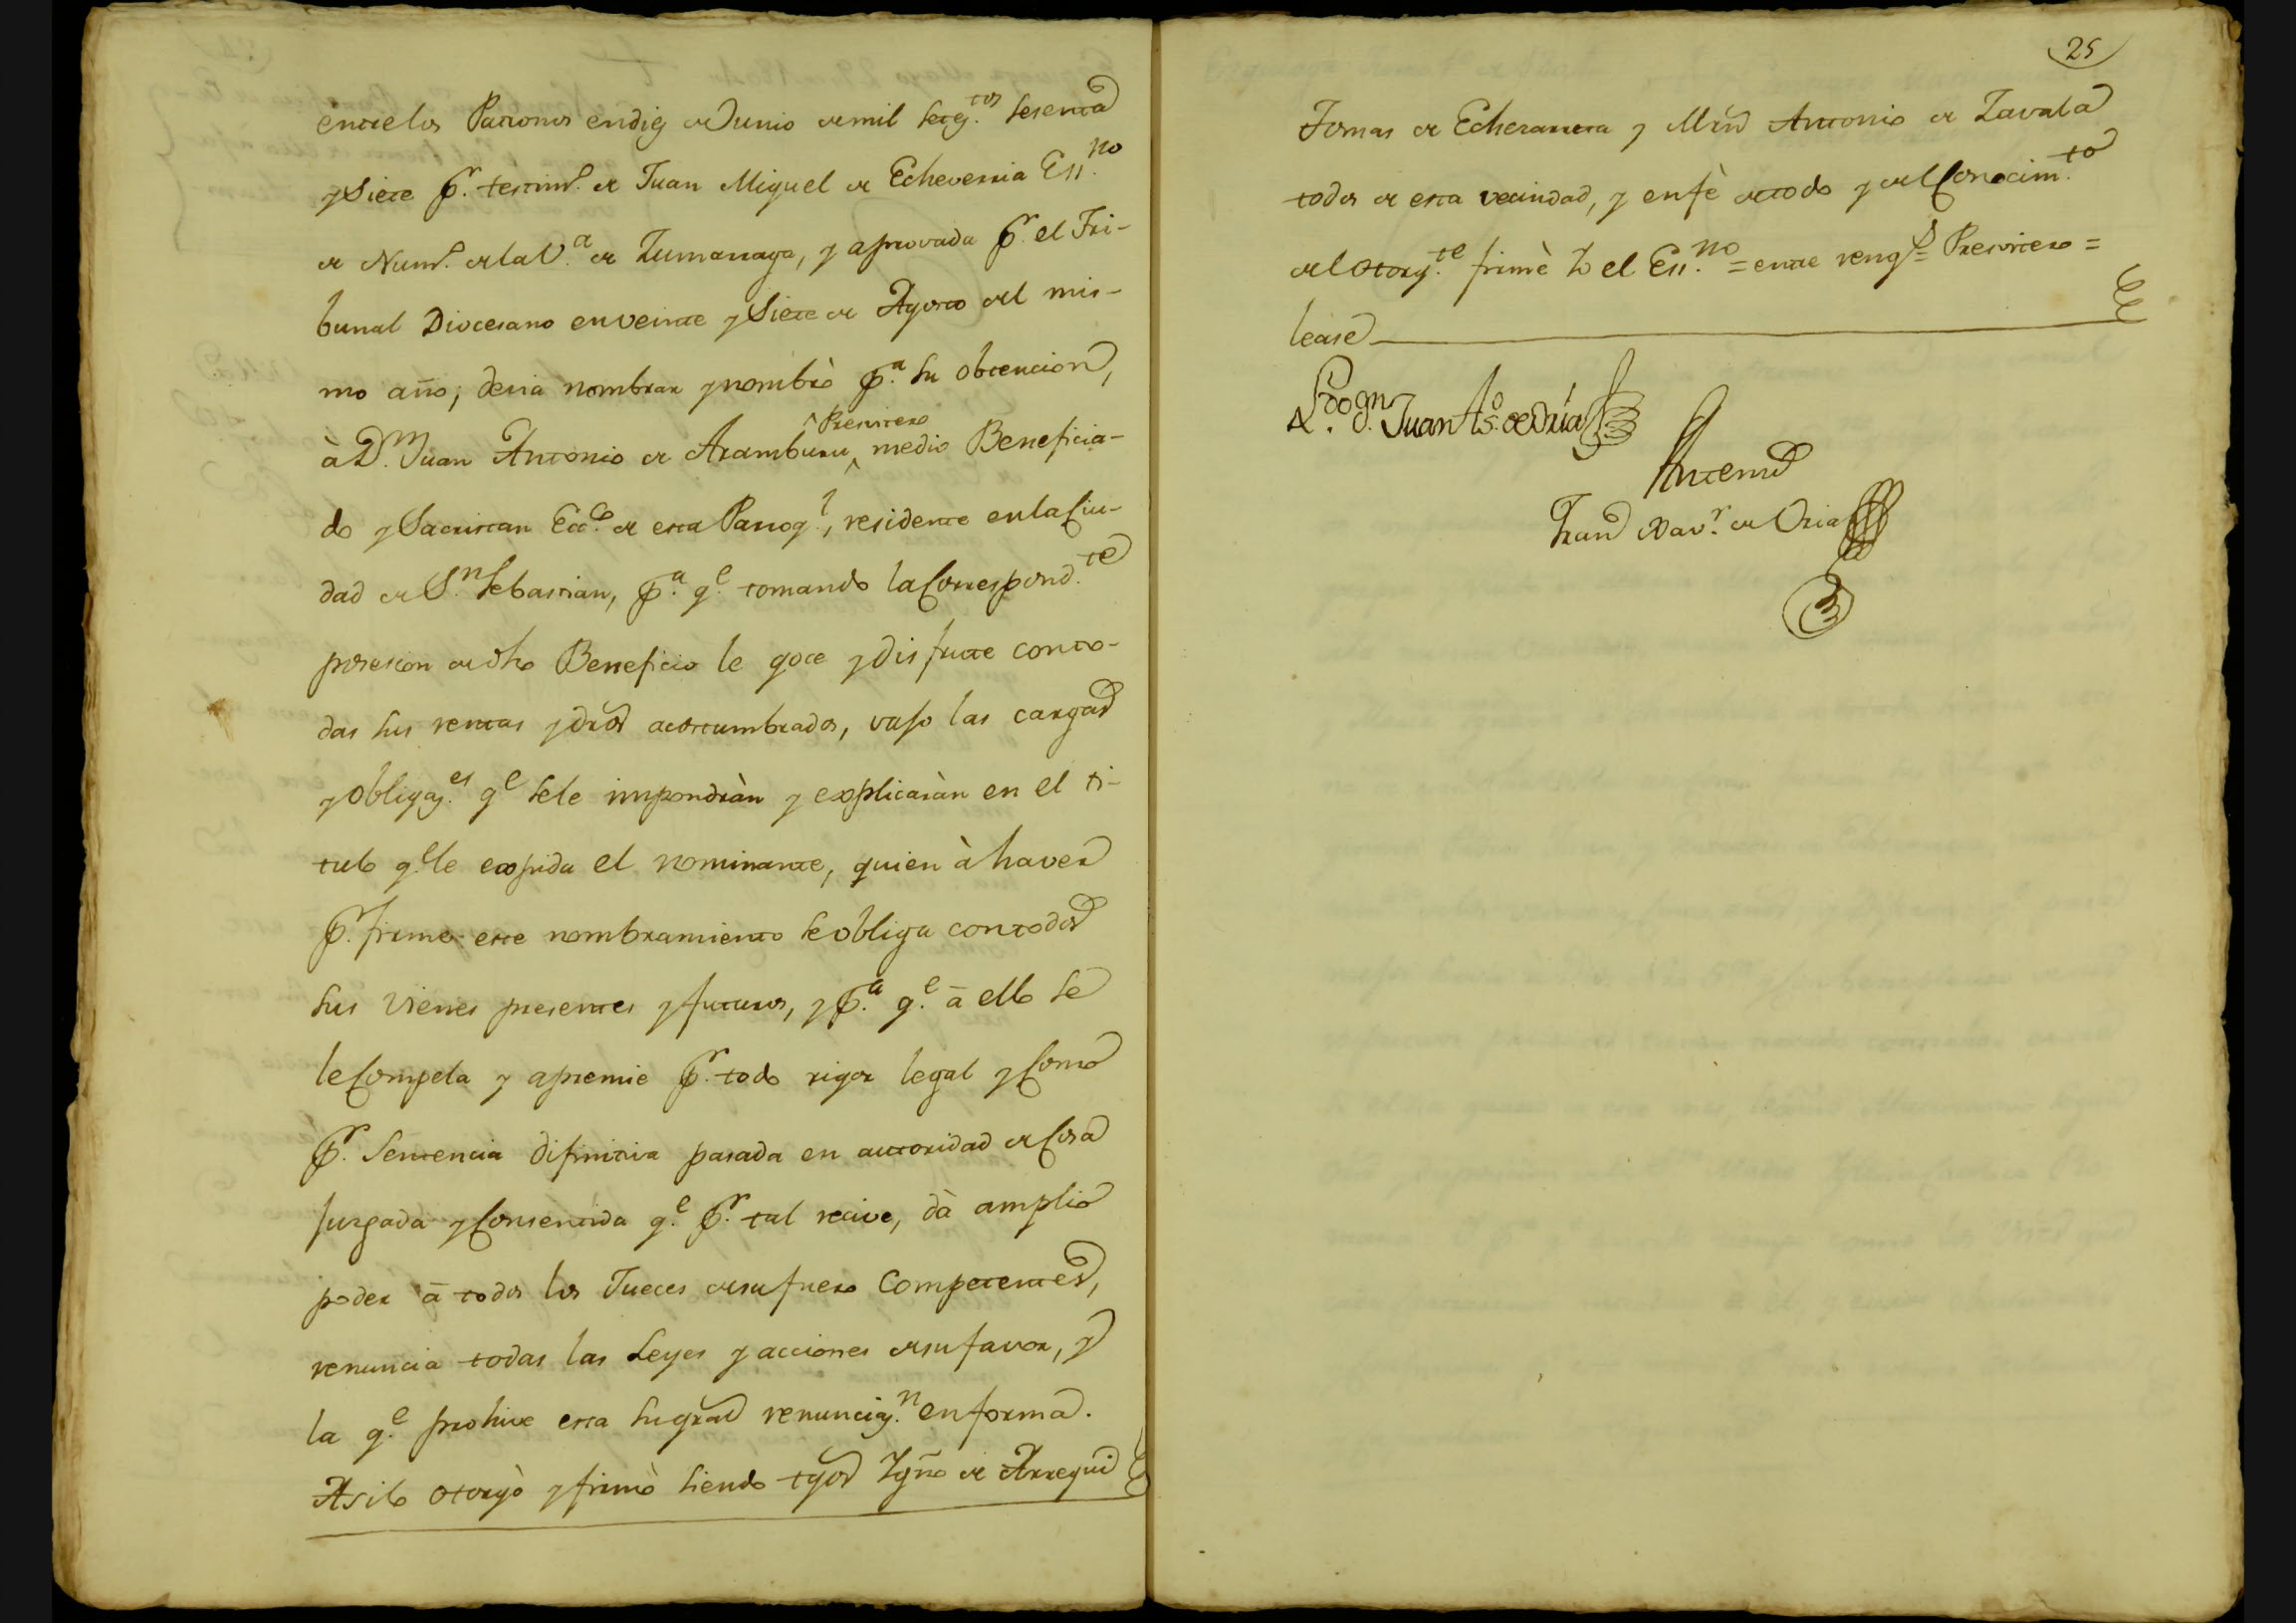 entre los Patronos en diez de Junio de mil setez.tos sesenta
y siete p.r testim.o de Juan Miguel de Echeverria Ess.no
de Num.o de la V.a de Zumarraga, y aprovada p.r el Tri-
bunal Diocesano en veinte y siete de Agosto del mis-
mo año; devia nombrar y nombrò p.a su obtencion,
à D.n Juan Antonio de Aramburu ^Presvitero medio Beneficia-
do y Sacristan Ecc.o de esta Parroq.l, residente en la Ciu-
dad de S.n Sebastian, p.a q.e tomando la Correspond.te
posesion de dho Beneficio le goce y disfrute con to-
das sus rentas y dros acostumbrados, vajo las cargas
y obligaz.es q.e se le impondràn y explicaràn en el ti-
tulo q.e le expida el nominante, quien à haver
p.r firme este nombramiento se obliga con todos
sus vienes presentes y futuros, y p.a q.e à ello se
le Compela y apremie p.r todo rigor legal y Como
p.r Sentencia difinitiva pasada en autoridad de Cosa
juzgada y Consentida q.e p.r tal recive, dà amplio
poder à todos los Jueces de su fuero Competentes,
renuncia todas las Leyes y acciones de su favor, y
la q.e prohive esta su gral renunciaz.n en forma.
Asi lo otorgò y firmò siendo tgos Ygn.o de Arregui
25
Tomas de Echezarreta y Mrn Antonio de Zavala
todos de esta vecindad, y en fè de todo y del Conocim.to
del Otorg.te firmè Yo el Ess.no = entre rengs = Presvitero =
lease
Lizdo Dn. Juan As.o de Oria
Antemi
Fran Xav.r de Oria